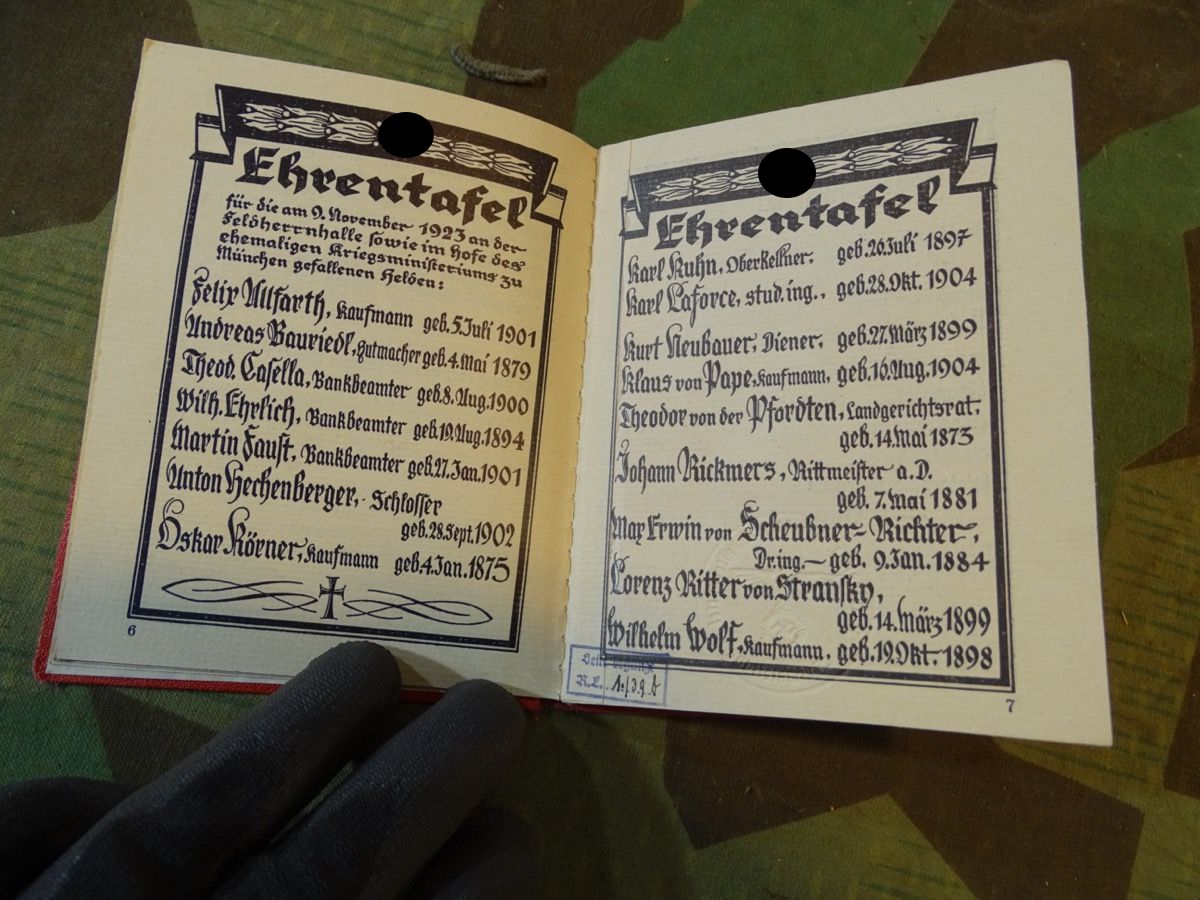 Ehrentafel
für die am 9. November 1923 an der
Feldherrnhalle sowie im Hofe des
ehemaligen Kriegsministeriums zu
München gefallenen Helden:
Felix Allfarth, Kaufmann geb. 5. Juli 1901
Andreas Bauriedl, Hutmacher geb. 4. Mai 1879
Theod. Casella, Bankbeamter geb. 8. Aug. 1900
Wilh. Ehrlich, Bankbeamter geb. 19. Aug. 1894
Martin Faust, Bankbeamter geb. 27. Jan. 1901
Anton Hechenberger, Schlosser
geb. 28. Sept. 1902
Oskar Körner, Kaufmann geb. 4. Jan. 1875
6
Ehrentafel
Karl Kuhn, Oberkellner, geb. 26. Juli 1897
Karl Laforce, stud. ing., geb. 28. Okt. 1904
Kurt Neubauer, Diener, geb. 27. März 1899
Klaus von Pape, Kaufmann, geb. 16. Aug. 1904
Theodor von der Pfordten, Landgerichtsrat,
geb. 14. Mai 1873
Johann Rickmers, Rittmeister a. D.
geb. 7. Mai 1881
Max Erwin von Scheubner-Richter,
Dr. ing. — geb. 9. Jan. 1884
Lorenz Ritter von Stransky,
geb. 14. März 1899
Wilhelm Wolf, Kaufmann, geb. 19. Okt. 1898
R.L.
7